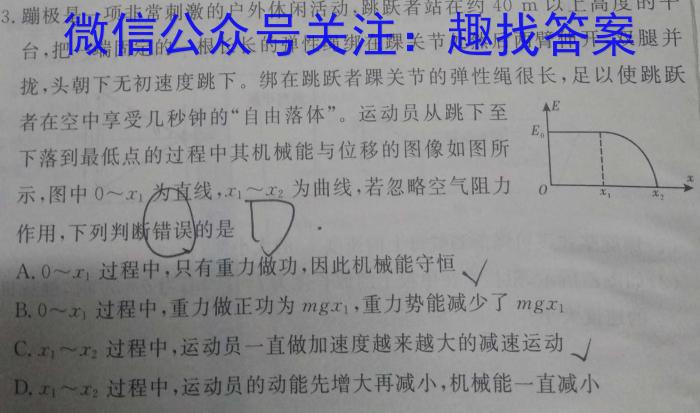 3. 蹦极是一项非常刺激的户外休闲活动,跳跃者站在约 40 m 以上高度的平
微信公众号关注:趣找答案
台,把一端固定的一根长长的弹性绳绑在踝关节
腿并
拢,头朝下无初速度跳下。绑在跳跃者踝关节的弹性绳很长,足以使跳跃
者在空中享受几秒钟的“自由落体”。运动员从跳下至
下落到最低点的过程中其机械能与位移的图像如图所
示,图中 0~x₁ 为直线,x₁~x₂ 为曲线,若忽略空气阻力
作用,下列判断错误的是
E
E₀
O
x₁
x₂
x
A. 0~x₁ 过程中,只有重力做功,因此机械能守恒
B. 0~x₁ 过程中,重力做正功为 mgx₁,重力势能减少了 mgx₁
C. x₁~x₂ 过程中,运动员一直做加速度越来越大的减速运动
D. x₁~x₂ 过程中,运动员的动能先增大再减小,机械能一直减小